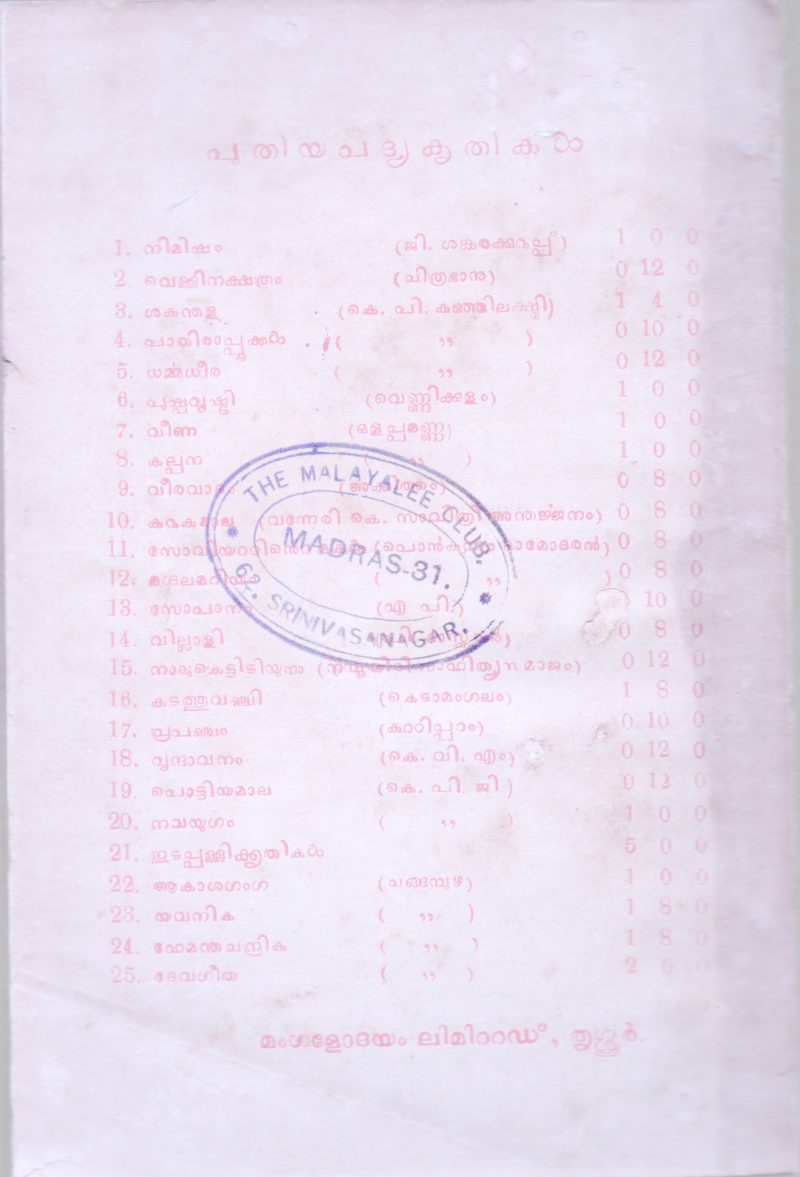 പുതിയപദ്യകൃതികൾ
1. നിമിഷം (ജി. ശങ്കരക്കുറുപ്പ്) 1 0 0
2 വെള്ളിനക്ഷത്രം (ചിത്രഭാനു) 0 12 0
3. ശകുന്തള (കെ. പി. കുഞ്ഞിലക്ഷ്മി) 1 4 0
4. പാതിരാപ്പൂക്കൾ ( ,, ) 0 10 0
5. ധൎമ്മധീര ( ,, ) 0 12 0
6. പുഷ്പവൃഷ്ടി (വെണ്ണിക്കുളം) 1 0 0
7. വീണ (ഒളപ്പമണ്ണ) 1 0 0
8. കല്പന ( ,, ) 1 0 0
9. വീരവാദം (അക്കിത്തം) 0 8 0
10. (വന്നേരി കെ. സാവിത്രി അന്തർജ്ജനം) 0 8 0
11. (പൊൻകുന്നം ദാമോദരൻ) 0 8 0
12. ( ,, ) 0 8 0
13. സോപാനം (എ പി.) 10 0
14. വില്ലാളി 0 8 0
15. നാലുകെട്ടിടിയുന്നു (നമ്പൂതിരിസാഹിത്യസമാജം) 0 12 0
16. കടത്തുവഞ്ചി (കെടാമംഗലം) 1 8 0
17. പ്രപഞ്ചം (കുററിപ്പുറം) 0 10 0
18. വൃന്ദാവനം (കെ. വി. എം) 0 12 0
19. പൊട്ടിയമാല (കെ. പി. ജി) 0 12 0
20. നവയുഗം ( ,, ) 1 0 0
21. ഇടപ്പള്ളിക്കൃതികൾ 5 0 0
22. ആകാശഗംഗ (ചങ്ങമ്പുഴ) 1 0 0
23. യവനിക ( ,, ) 1 8 0
24. ഹേമന്തചന്ദ്രിക ( ,, ) 1 8 0
25. ദേവഗീത ( ,, ) 2 0 0
മംഗളോദയം ലിമിററഡ്, തൃശ്ശൂർ.
THE MALAYALEE CLUB,
MADRAS-31.
62. SRINIVASANAGAR.